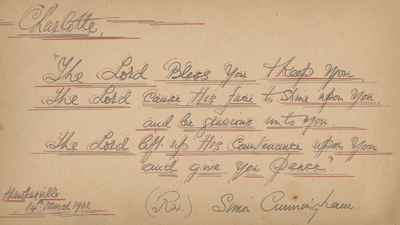 Charlotte,
"The Lord Bless You & keep You,
The Lord Cause His face to Shine upon You,
and be gracious unto You
The Lord lift up His Countenance upon You
and give You Peace."
14th March
(Rev.) Simon Cunningham